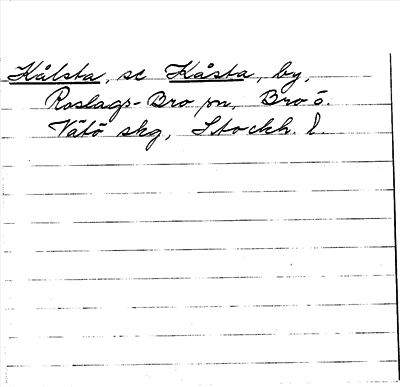 Kålsta, se Kåsta, by,
Roslags-Bro sn, Bro o.
Vätö skg, Stockh. l.